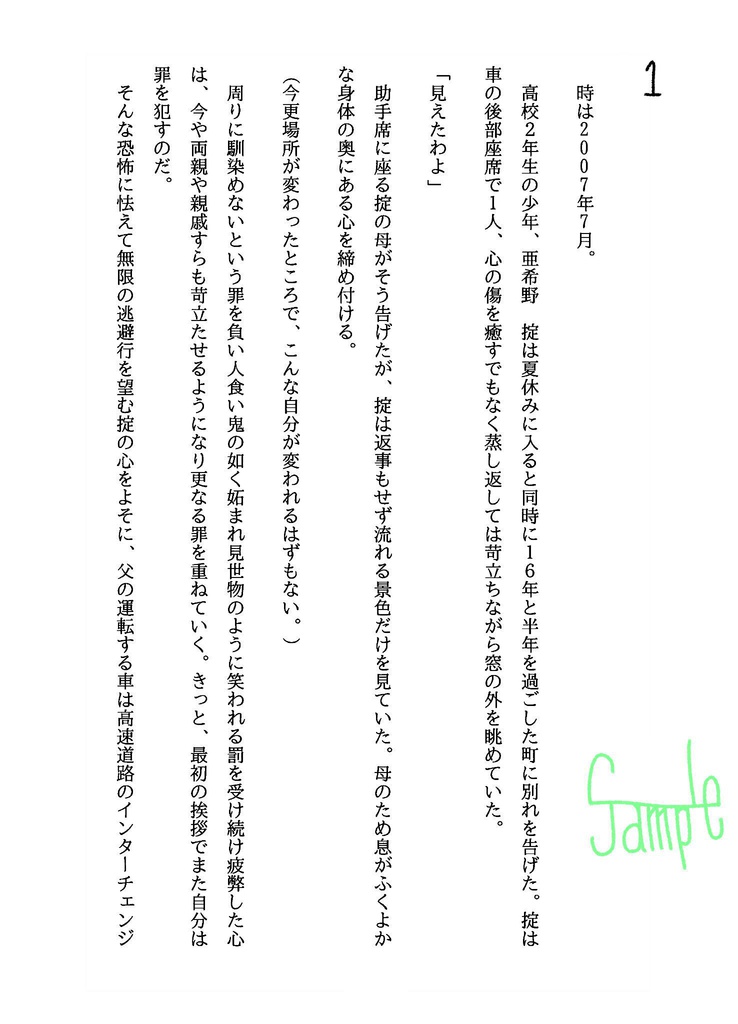 1
時は2007年7月。
高校2年生の少年、亜希野　掟は夏休みに入ると同時に16年と半年を過ごした町に別れを告げた。掟は
車の後部座席で1人、心の傷を癒すでもなく蒸し返しては苛立ちながら窓の外を眺めていた。
「見えたわよ」
助手席に座る掟の母がそう告げたが、掟は返事もせず流れる景色だけを見ていた。母のため息がふくよか
な身体の奥にある心を締め付ける。
（今更場所が変わったところで、こんな自分が変われるはずもない。）
周りに馴染めないという罪を負い人食い鬼の如く妬まれ見世物のように笑われる罰を受け続け疲弊した心
は、今や両親や親戚すらも苛立たせるようになり更なる罪を重ねていく。きっと、最初の挨拶でまた自分は
罪を犯すのだ。
そんな恐怖に怯えて無限の逃避行を望む掟の心をよそに、父の運転する車は高速道路のインターチェンジ
Sample